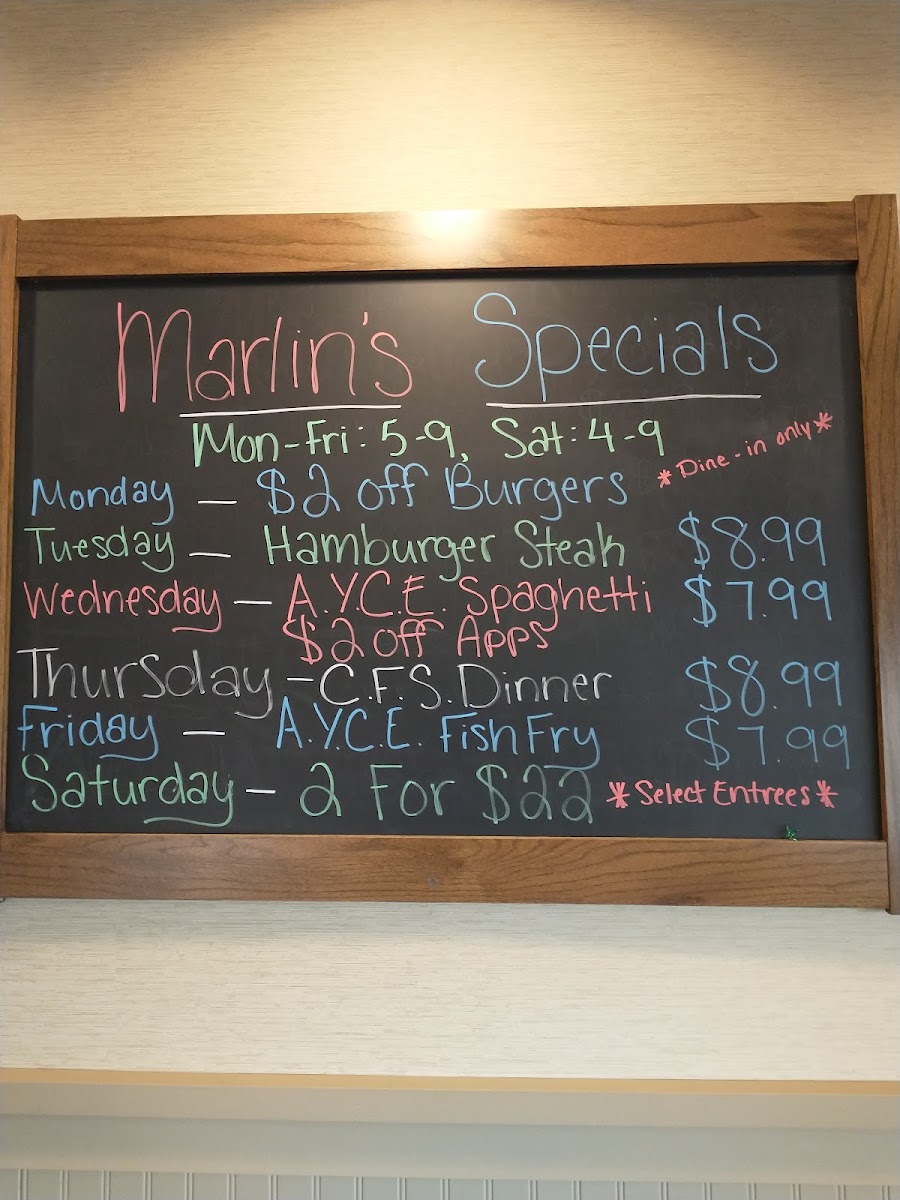 Marlin's Specials
Mon-Fri: 5-9, Sat: 4-9
*Dine-in only*
Monday — $2 off Burgers
Tuesday — Hamburger Steak $8.99
Wednesday — A.Y.C.E. Spaghetti $7.99
$2 off Apps
Thursday - C.F.S. Dinner $8.99
Friday — A.Y.C.E. Fish Fry $7.99
Saturday - 2 For $22 *Select Entrees*